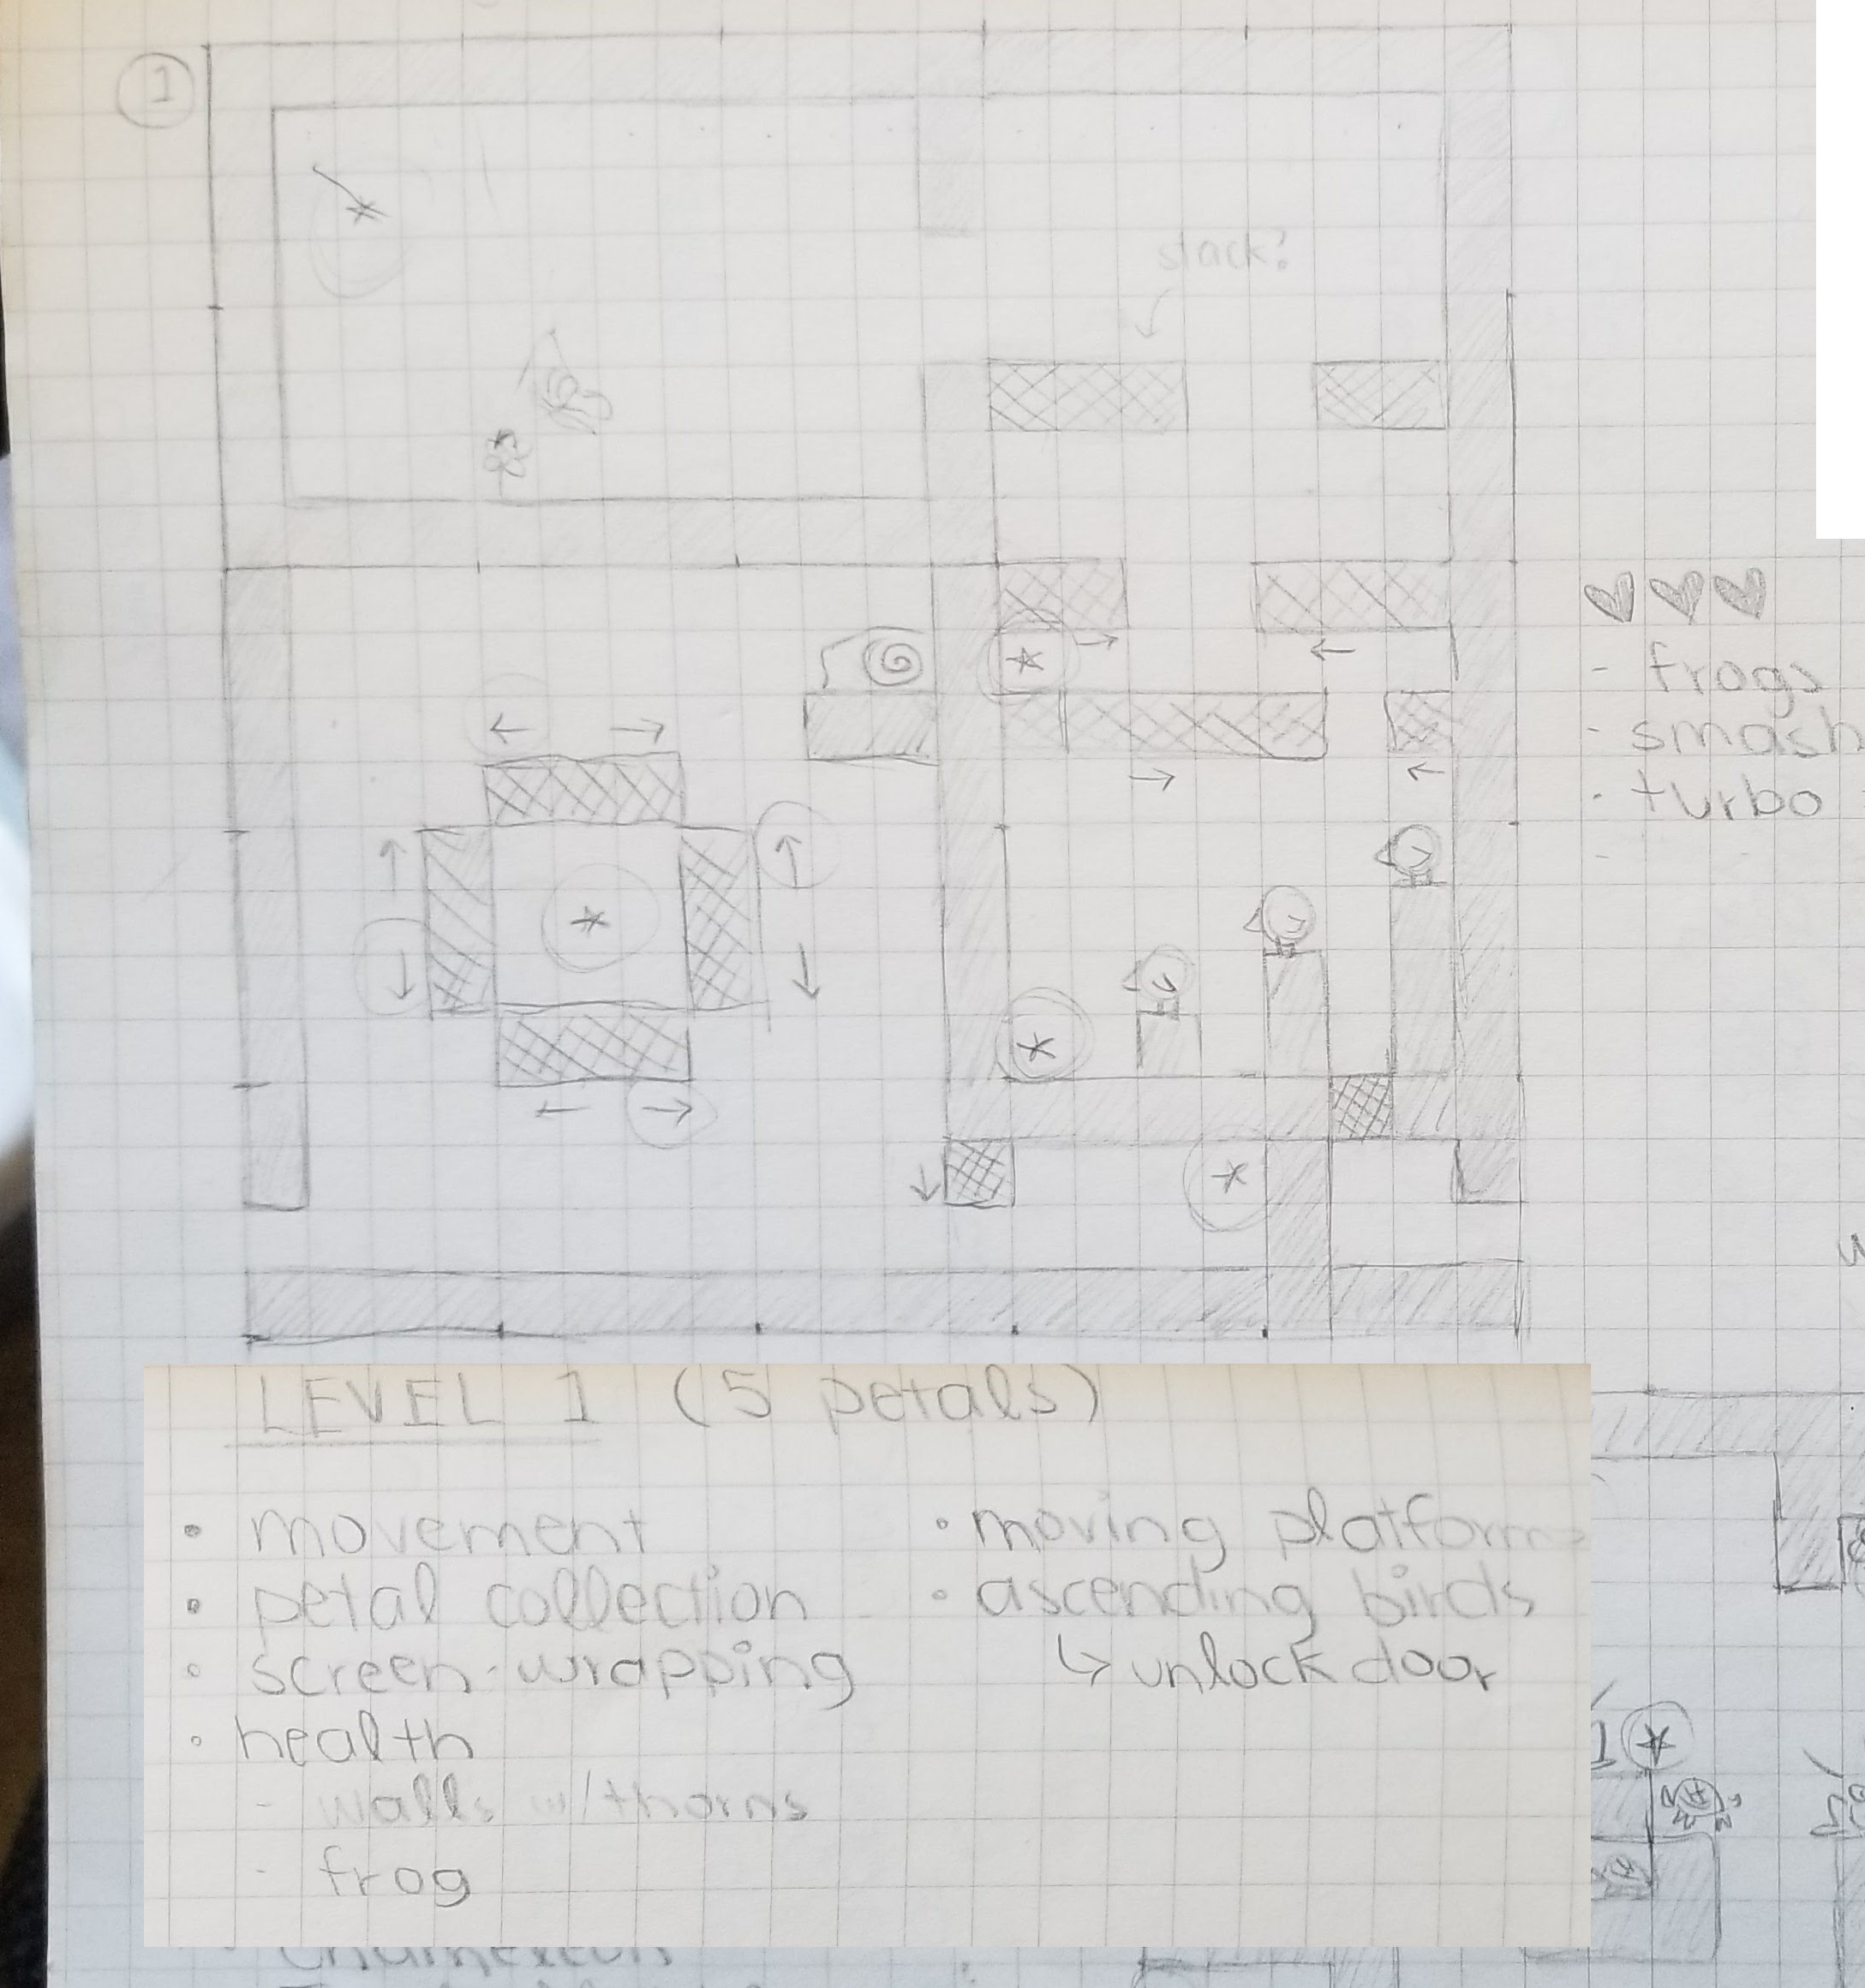 1
stack?
- frogs
- smash
- turbo
-
LEVEL 1 (5 petals)
• movement
• petal collection
• screen-wrapping
• health
- walls w/thorns
- frog
• moving platforms
• ascending birds
↳ unlock door
1